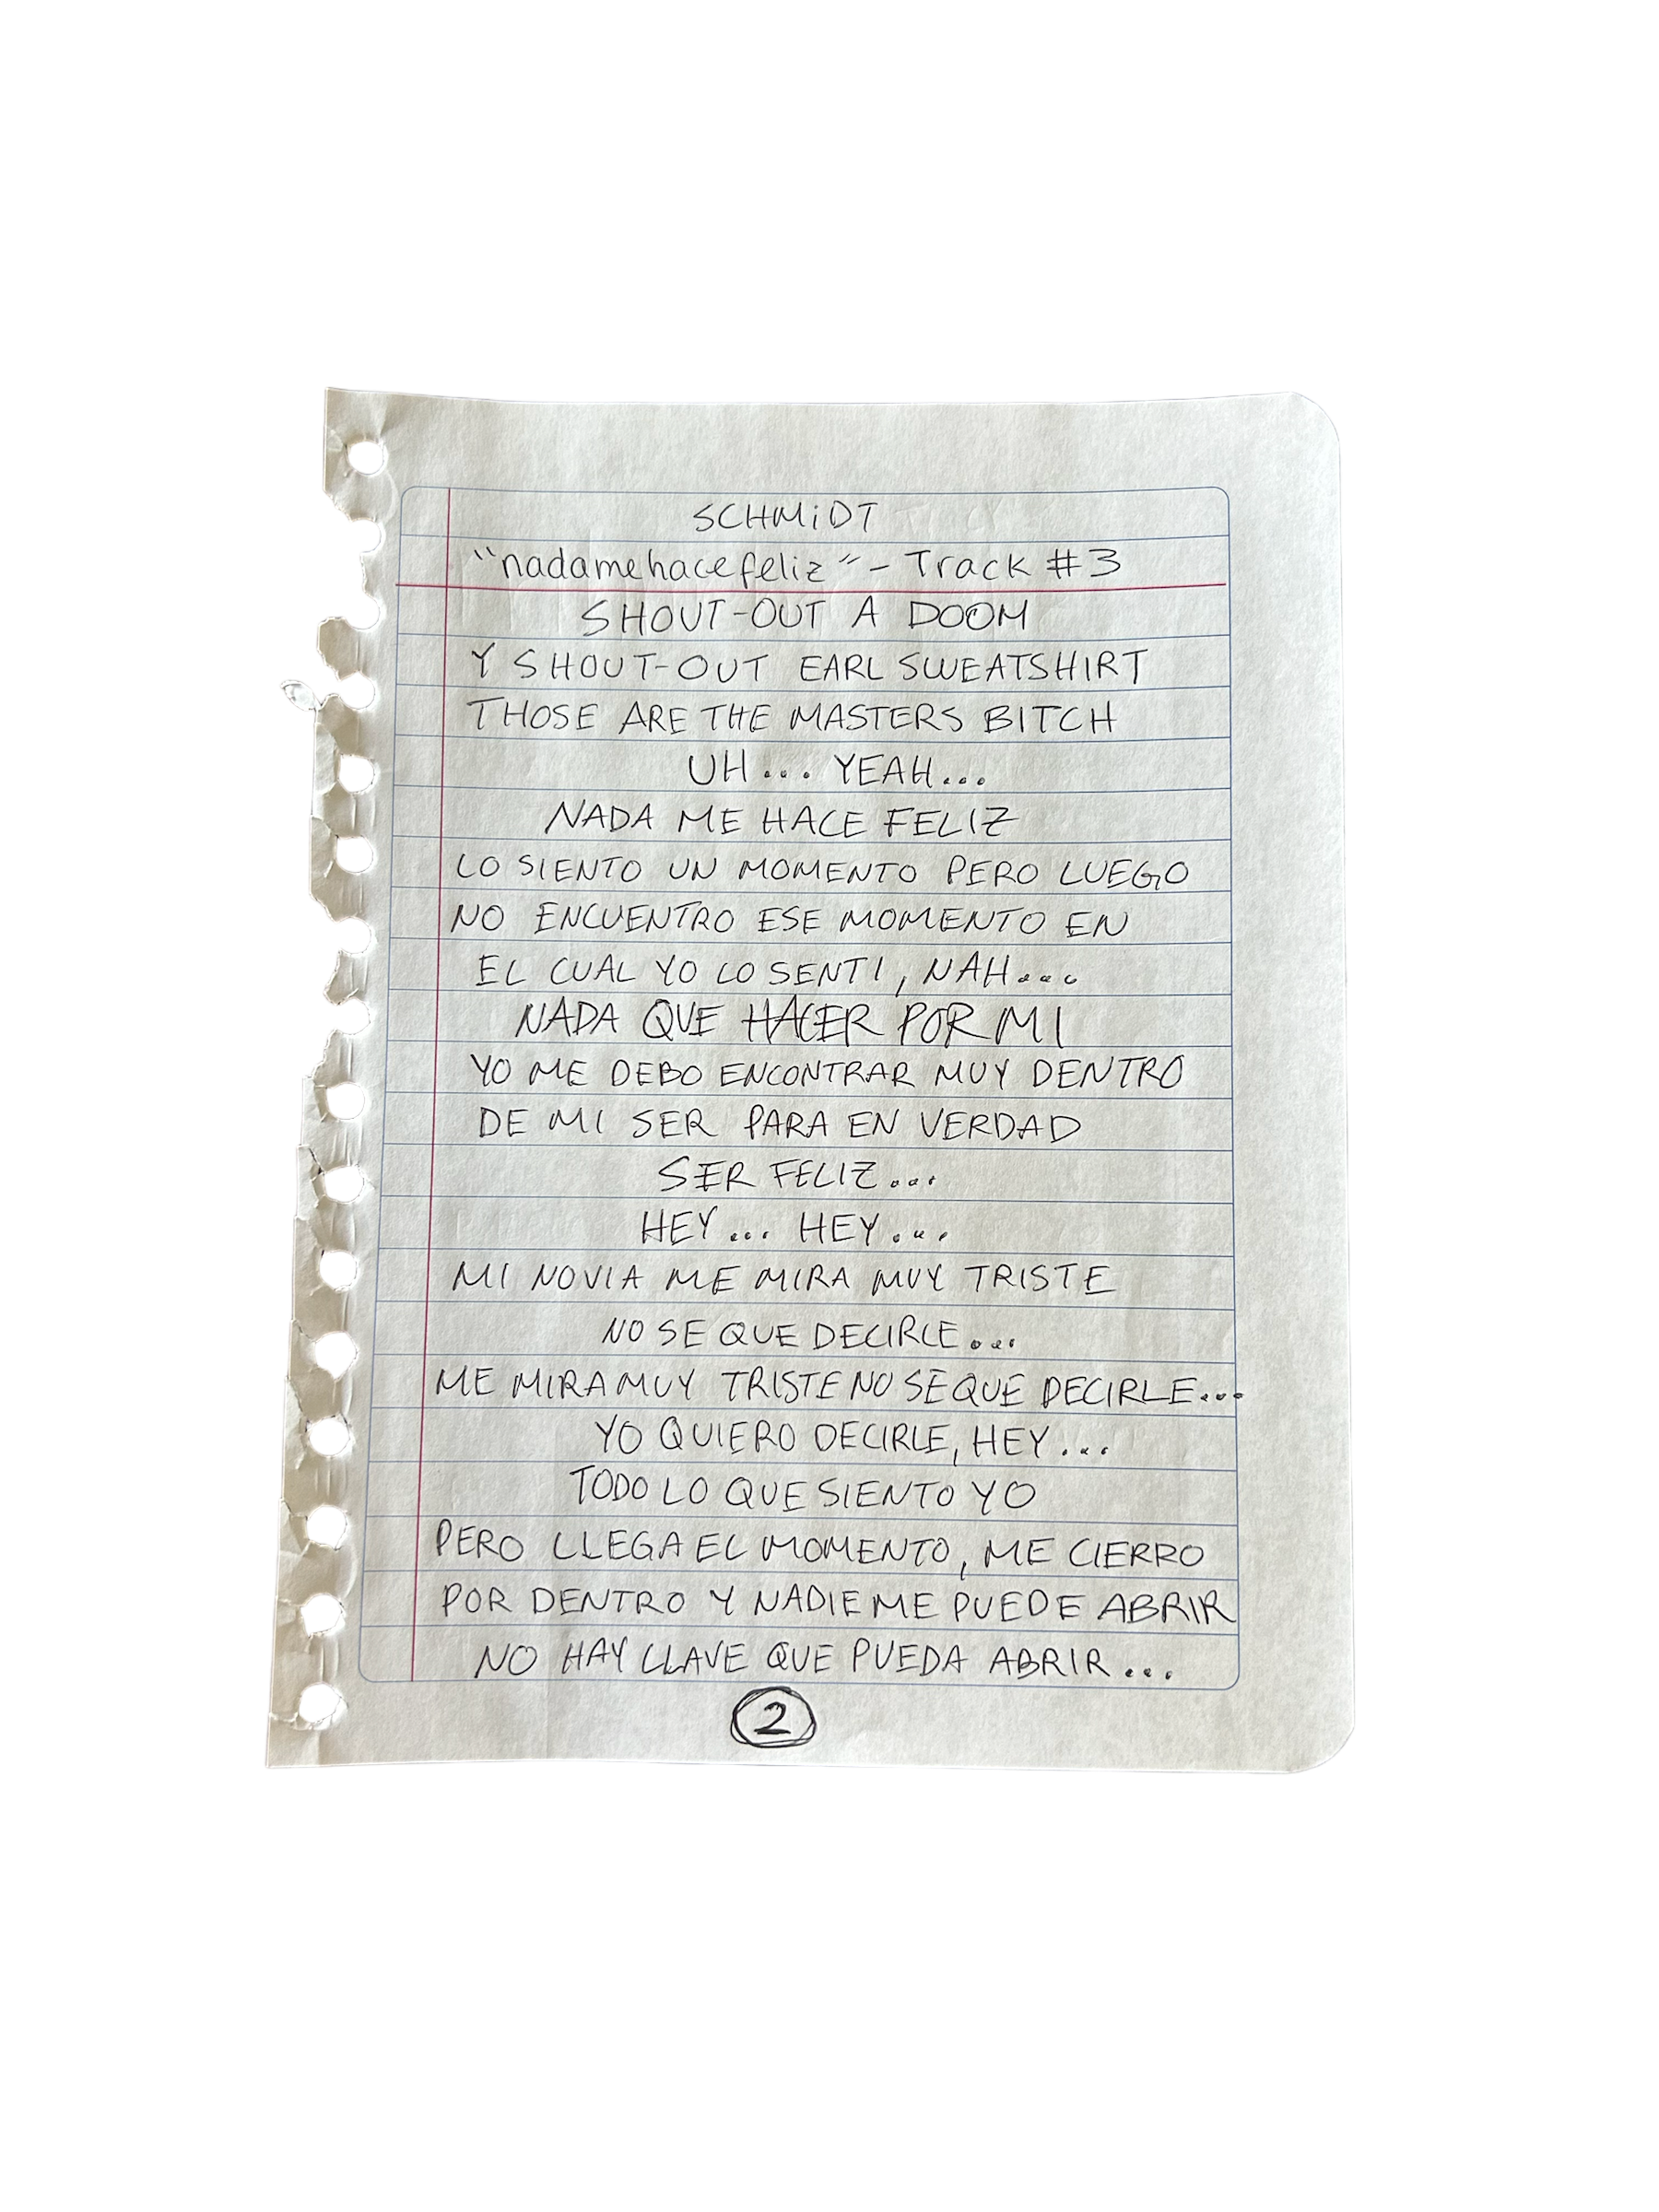 SCHMiDT
"nadamehacefeliz" - Track #3
SHOUT-OUT A DOOM
Y SHOUT-OUT EARL SWEATSHIRT
THOSE ARE THE MASTERS BITCH
UH... YEAH...
NADA ME HACE FELIZ
LO SIENTO UN MOMENTO PERO LUEGO
NO ENCUENTRO ESE MOMENTO EN
EL CUAL YO LO SENTI, NAH...
NADA QUE HACER POR MI
YO ME DEBO ENCONTRAR MUY DENTRO
DE MI SER PARA EN VERDAD
SER FELIZ...
HEY... HEY...
MI NOVIA ME MIRA MUY TRISTE
NO SE QUE DECIRLE...
ME MIRA MUY TRISTE NO SE QUE DECIRLE...
YO QUIERO DECIRLE, HEY...
TODO LO QUE SIENTO YO
PERO LLEGA EL MOMENTO, ME CIERRO
POR DENTRO Y NADIE ME PUEDE ABRIR
NO HAY LLAVE QUE PUEDA ABRIR...
2